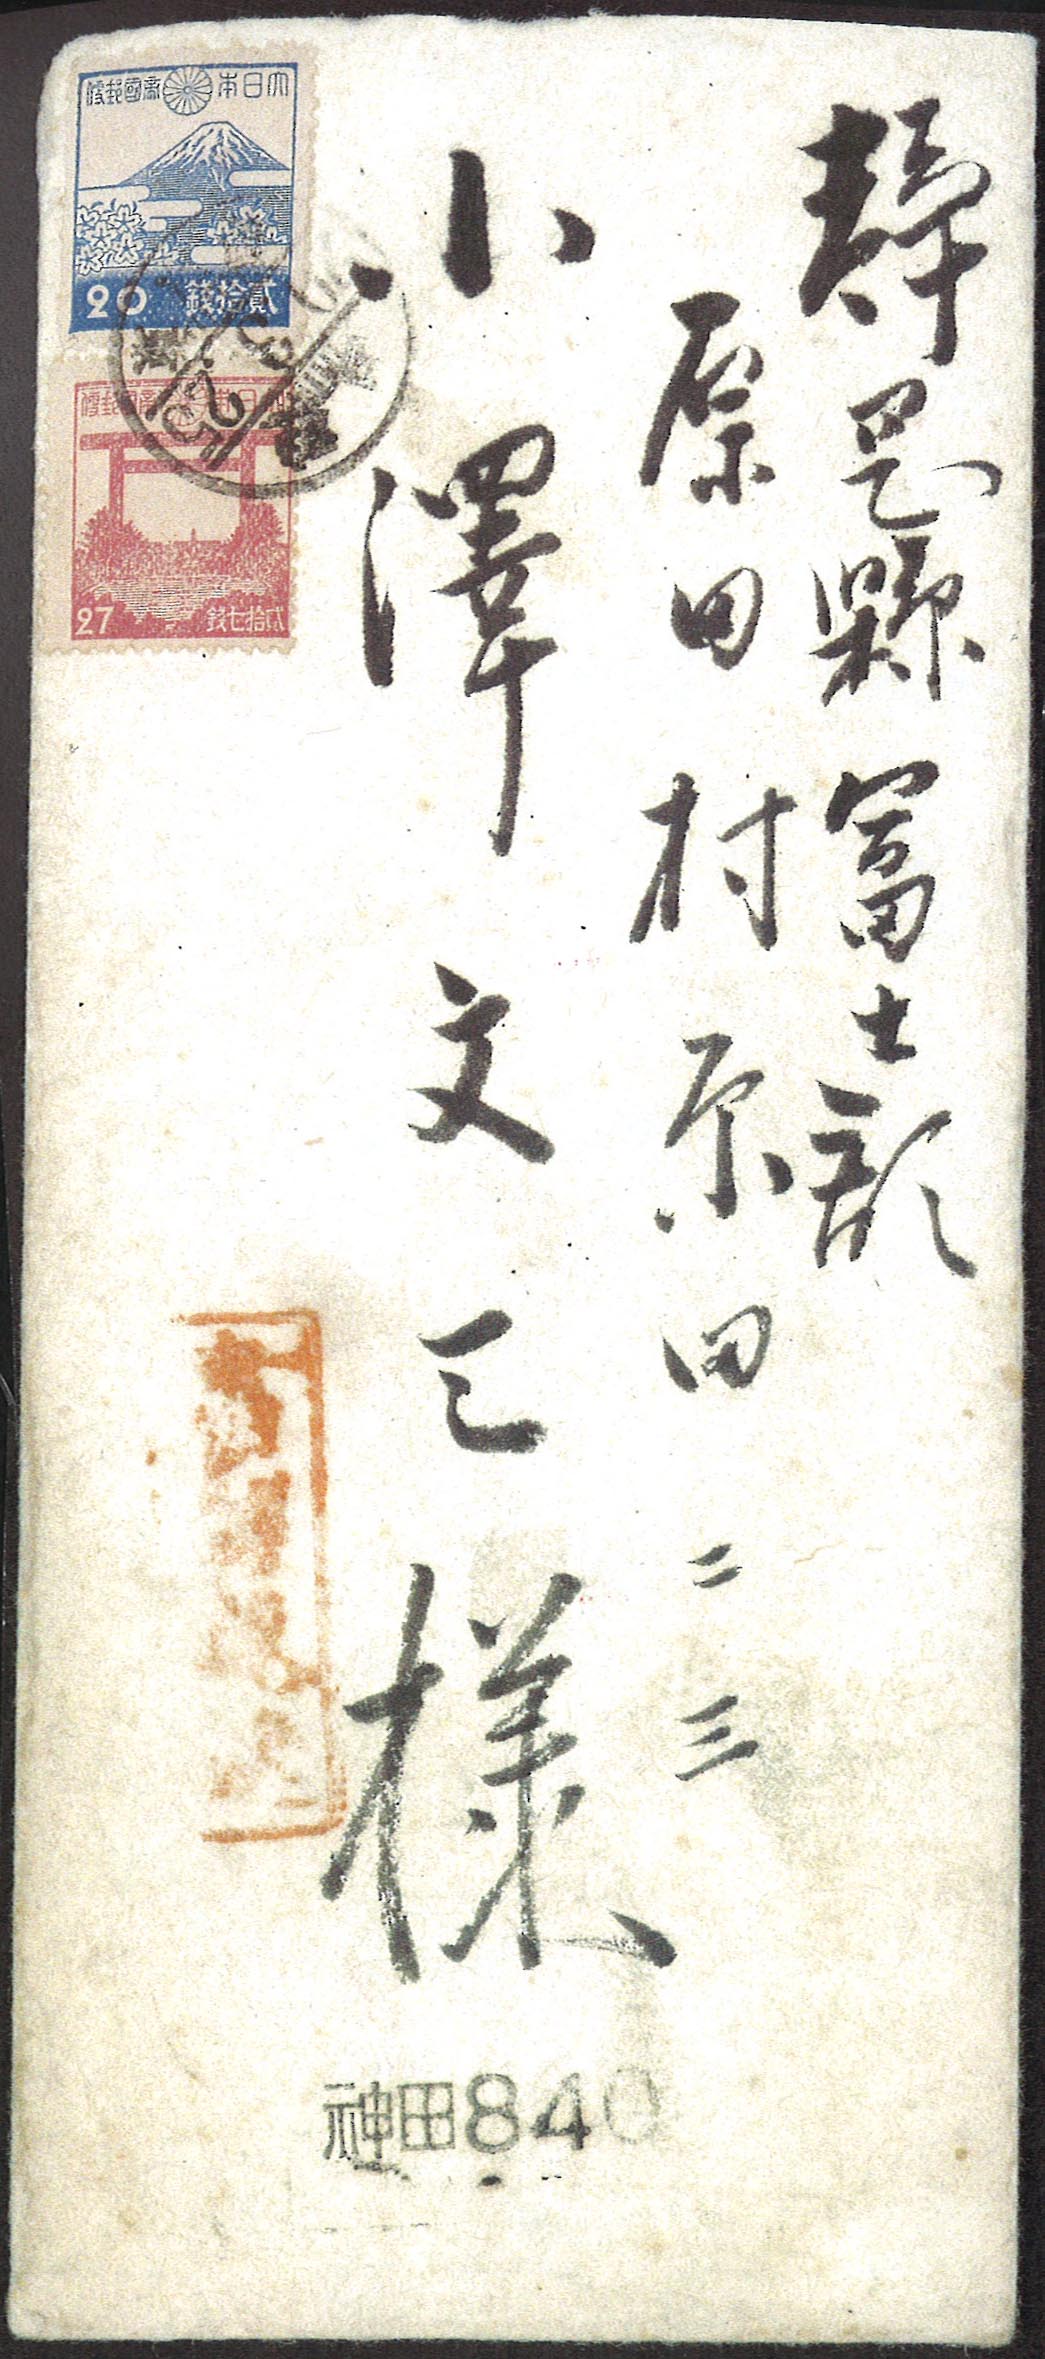 靜岡縣富士郡
原田村原田二三
小澤文已様
大日本帝國郵便
20 貳拾錢
大日本帝國郵便
27 貳拾七銭
神田840